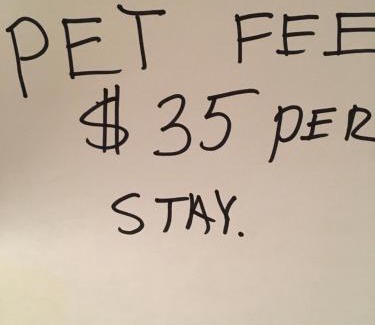 PET FEE
$35 PER
STAY.